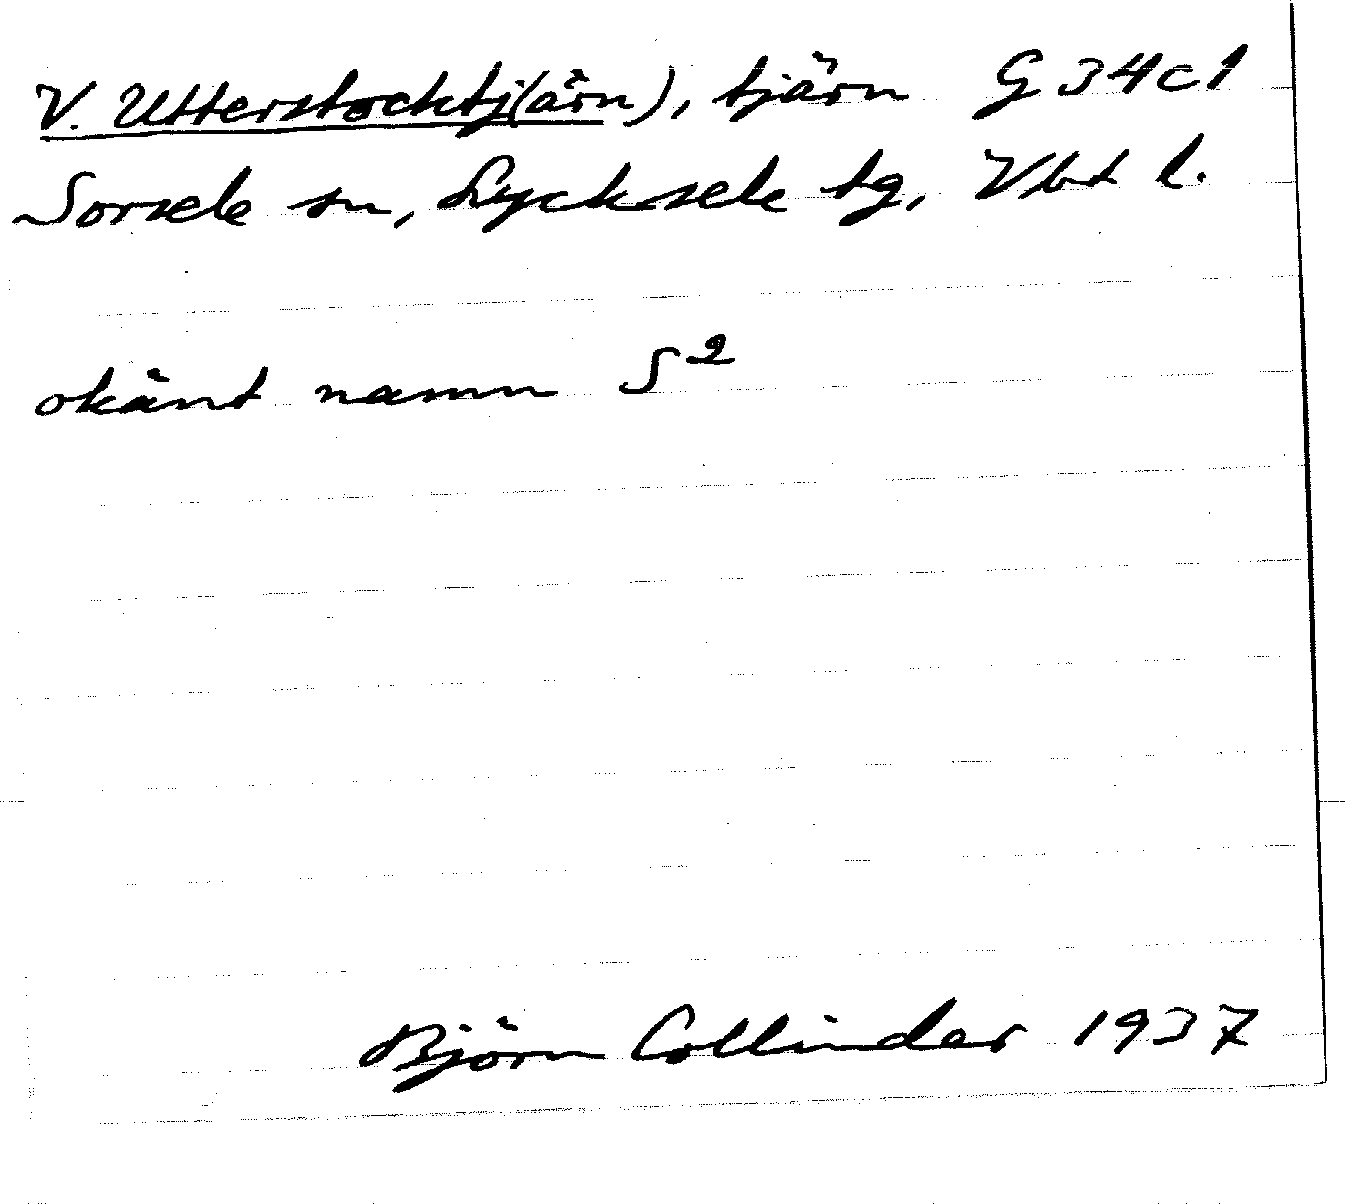 V. Utterstocktj(ärn), tjärn G 34c1
Sorsele sn, Lycksele tg, Vbt l.
okänt namn S²
Björn Collinder 1937